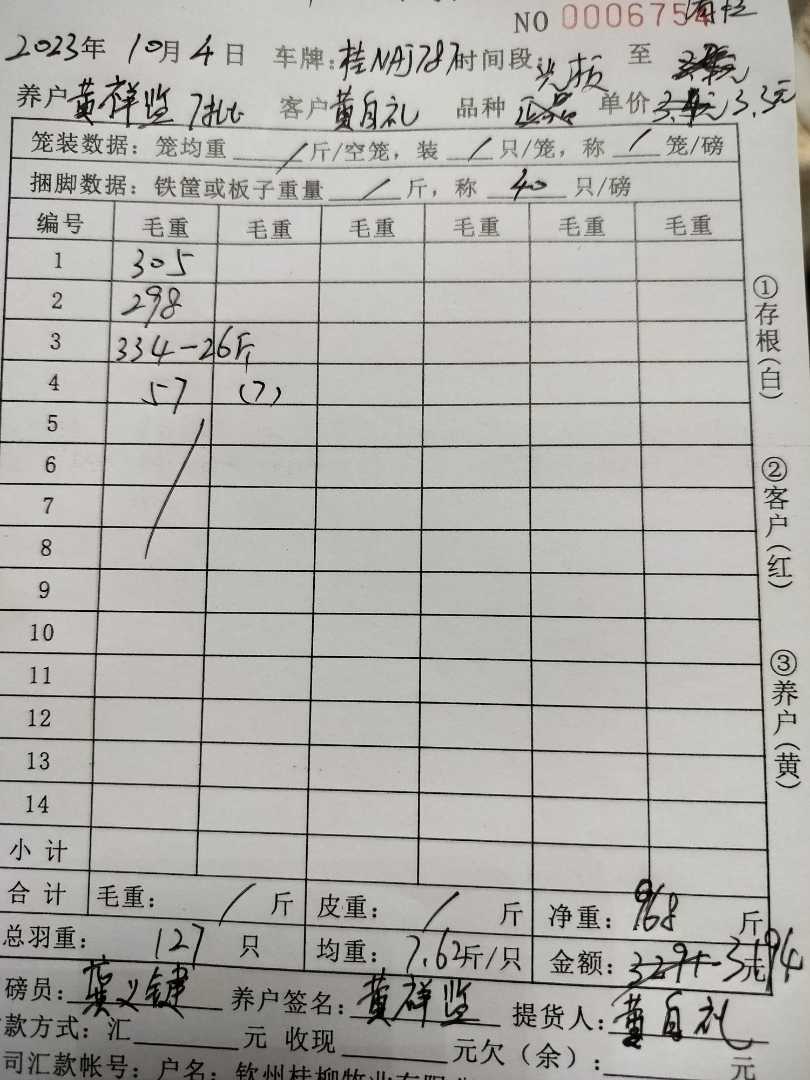 NO 0006754
2023年 10月 4日 车牌:桂NAJ787 时间段: 至
养户 黄祥监 7批 客户 黄自礼 品种 正品 单价 3.3元
笼装数据:笼均重 / 斤/空笼,装 / 只/笼,称 / 笼/磅
捆脚数据:铁筐或板子重量 / 斤,称 40 只/磅
编号 毛重 毛重 毛重 毛重 毛重 毛重
1 305
2 298
3 334-26斤
4 57 (7)
5
6
7
8
9
10
11
12
13
14
小计
合计 毛重: / 斤 皮重: / 斤 净重: 968 斤
总羽重: 127 只 均重: 7.62斤/只 金额: 3194元
磅员: 养户签名: 黄祥监 提货人: 黄自礼
款方式:汇 元 收现 元欠(余): 元
司汇款帐号:户名:钦州桂柳牧业有限
①存根(白)
②客户(红)
③养户(黄)